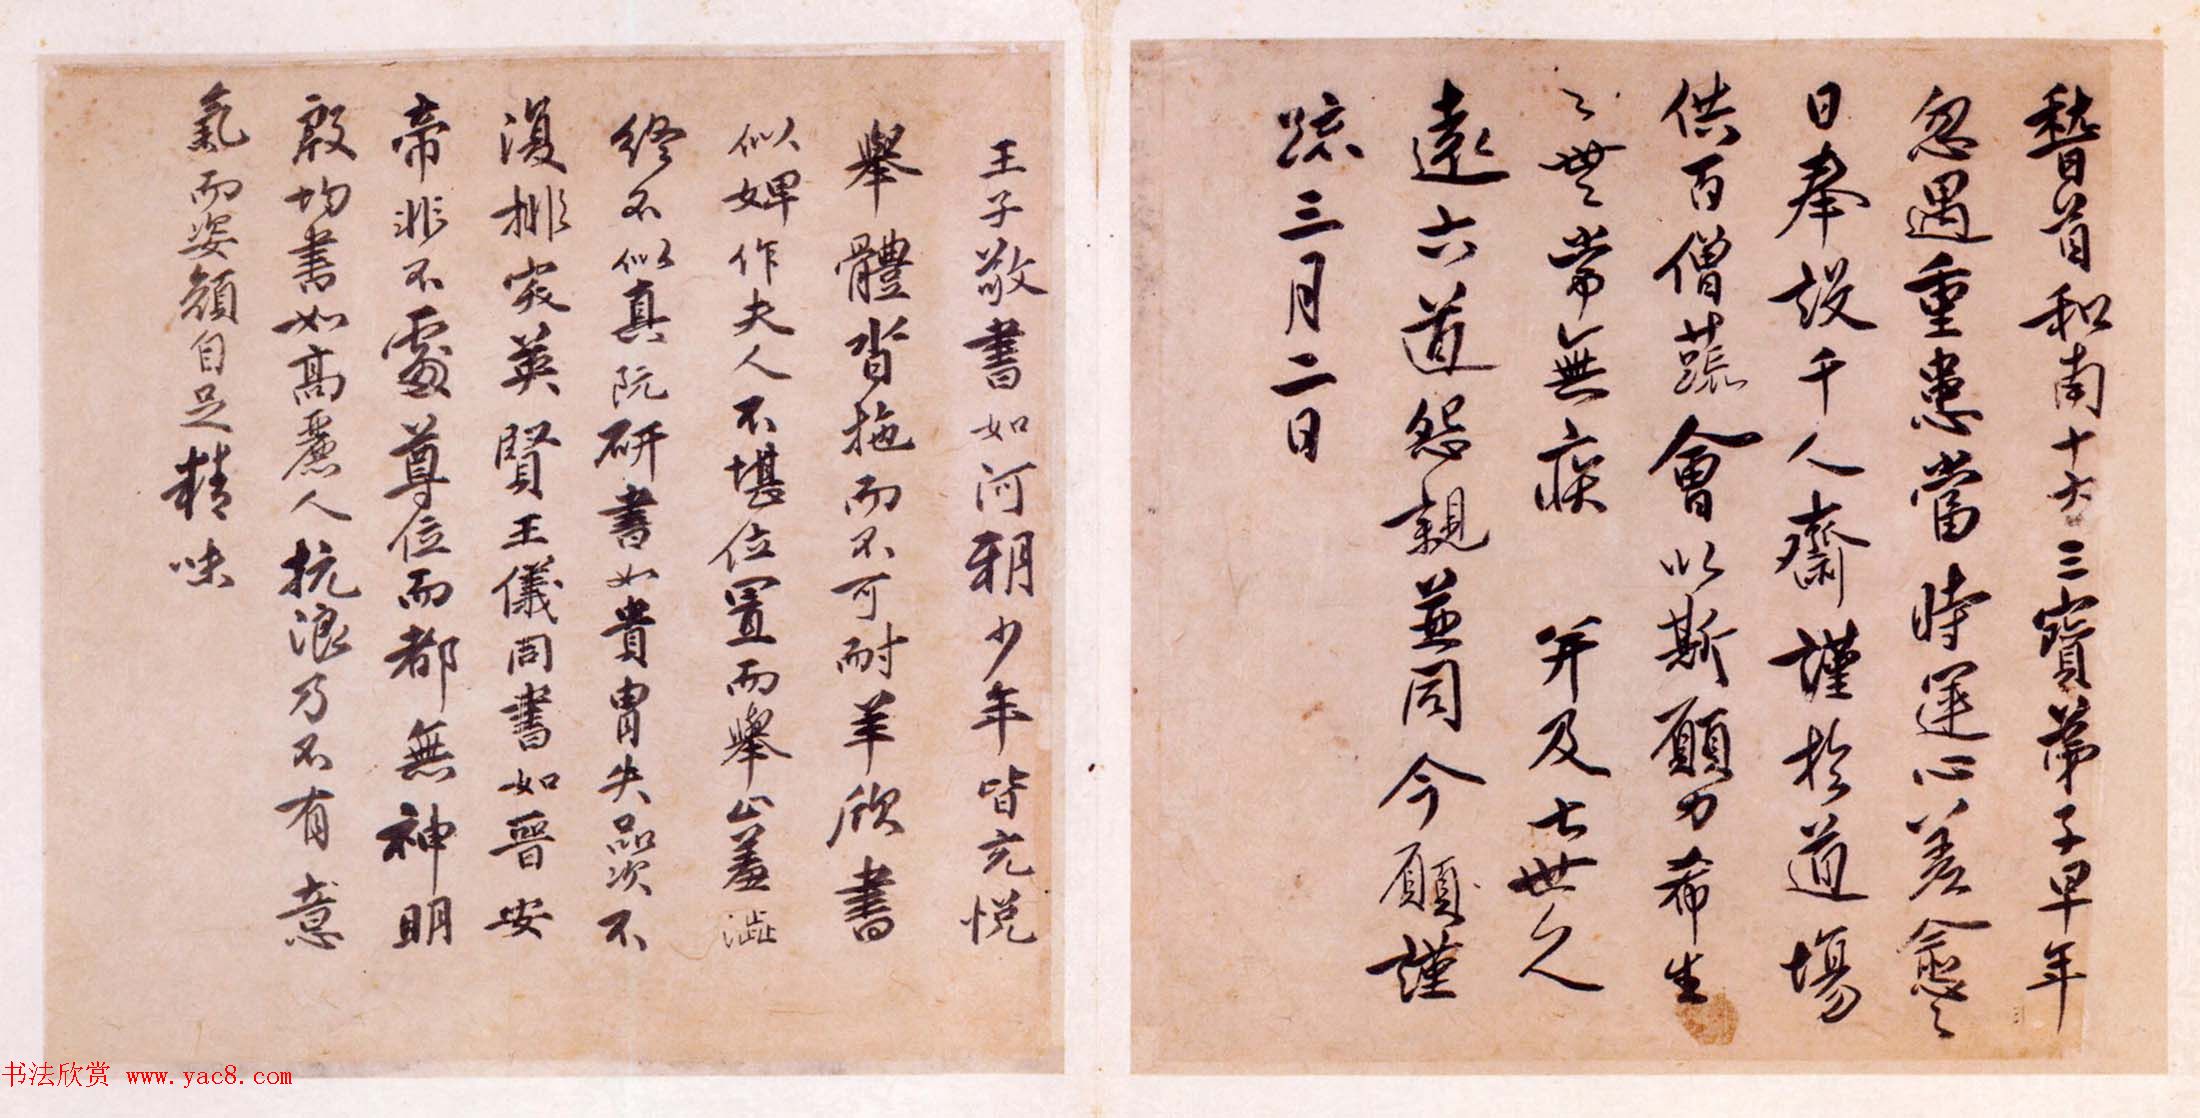 稽首和南十方三寶弟子早年
忽遇重患當時運心差愈之
日奉設千人齋謹於道場
供百僧蔬會以斯願力希生
々世々常無疾 并及七世久
遠六道怨親並同今願謹
疏三月二日
王子敬書如河朔少年皆充悅
舉體沓拖而不可耐羊欣書
似婢作夫人不堪位置而舉止羞澀
終不似真阮研書如貴胄失品次不
復排突英賢王儀同書如晉安
帝非不處尊位而都無神明
殷均書如高麗人抗浪乃不有意
氣而姿顏自足精味
书法欣赏 www.yac8.com